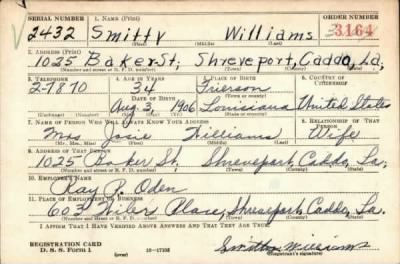 SERIAL NUMBER 1. NAME (Print) ORDER NUMBER
2432 Smitty Williams 3164
(First) (Middle) (Last)
2. ADDRESS (Print)
1025 Baker St, Shreveport, Caddo, La,
(Number and street or R. F. D. number) (Town) (County) (State)
3. TELEPHONE 4. AGE IN YEARS 5. PLACE OF BIRTH 6. COUNTRY OF CITIZENSHIP
2-7870 34 Grierson
DATE OF BIRTH
Aug. 3, 1906 Louisiana United States
(Exchange) (Number) (Mo.) (Day) (Yr.) (State or country)
7. NAME OF PERSON WHO WILL ALWAYS KNOW YOUR ADDRESS 8. RELATIONSHIP OF THAT PERSON
Mrs. Josie Williams Wife
(Mr., Mrs., Miss) (First) (Middle) (Last)
9. ADDRESS OF THAT PERSON
1025 Baker St, Shreveport, Caddo, La,
(Number and street or R. F. D. number) (Town) (County) (State)
10. EMPLOYER'S NAME
Ray P. Oden
11. PLACE OF EMPLOYMENT OR BUSINESS
603 Place, Shreveport, Caddo, La.
(Number and street or R. F. D. number) (Town) (County) (State)
I AFFIRM THAT I HAVE VERIFIED ABOVE ANSWERS AND THAT THEY ARE TRUE.
REGISTRATION CARD
D. S. S. Form 1 16-17105 Smitty Williams